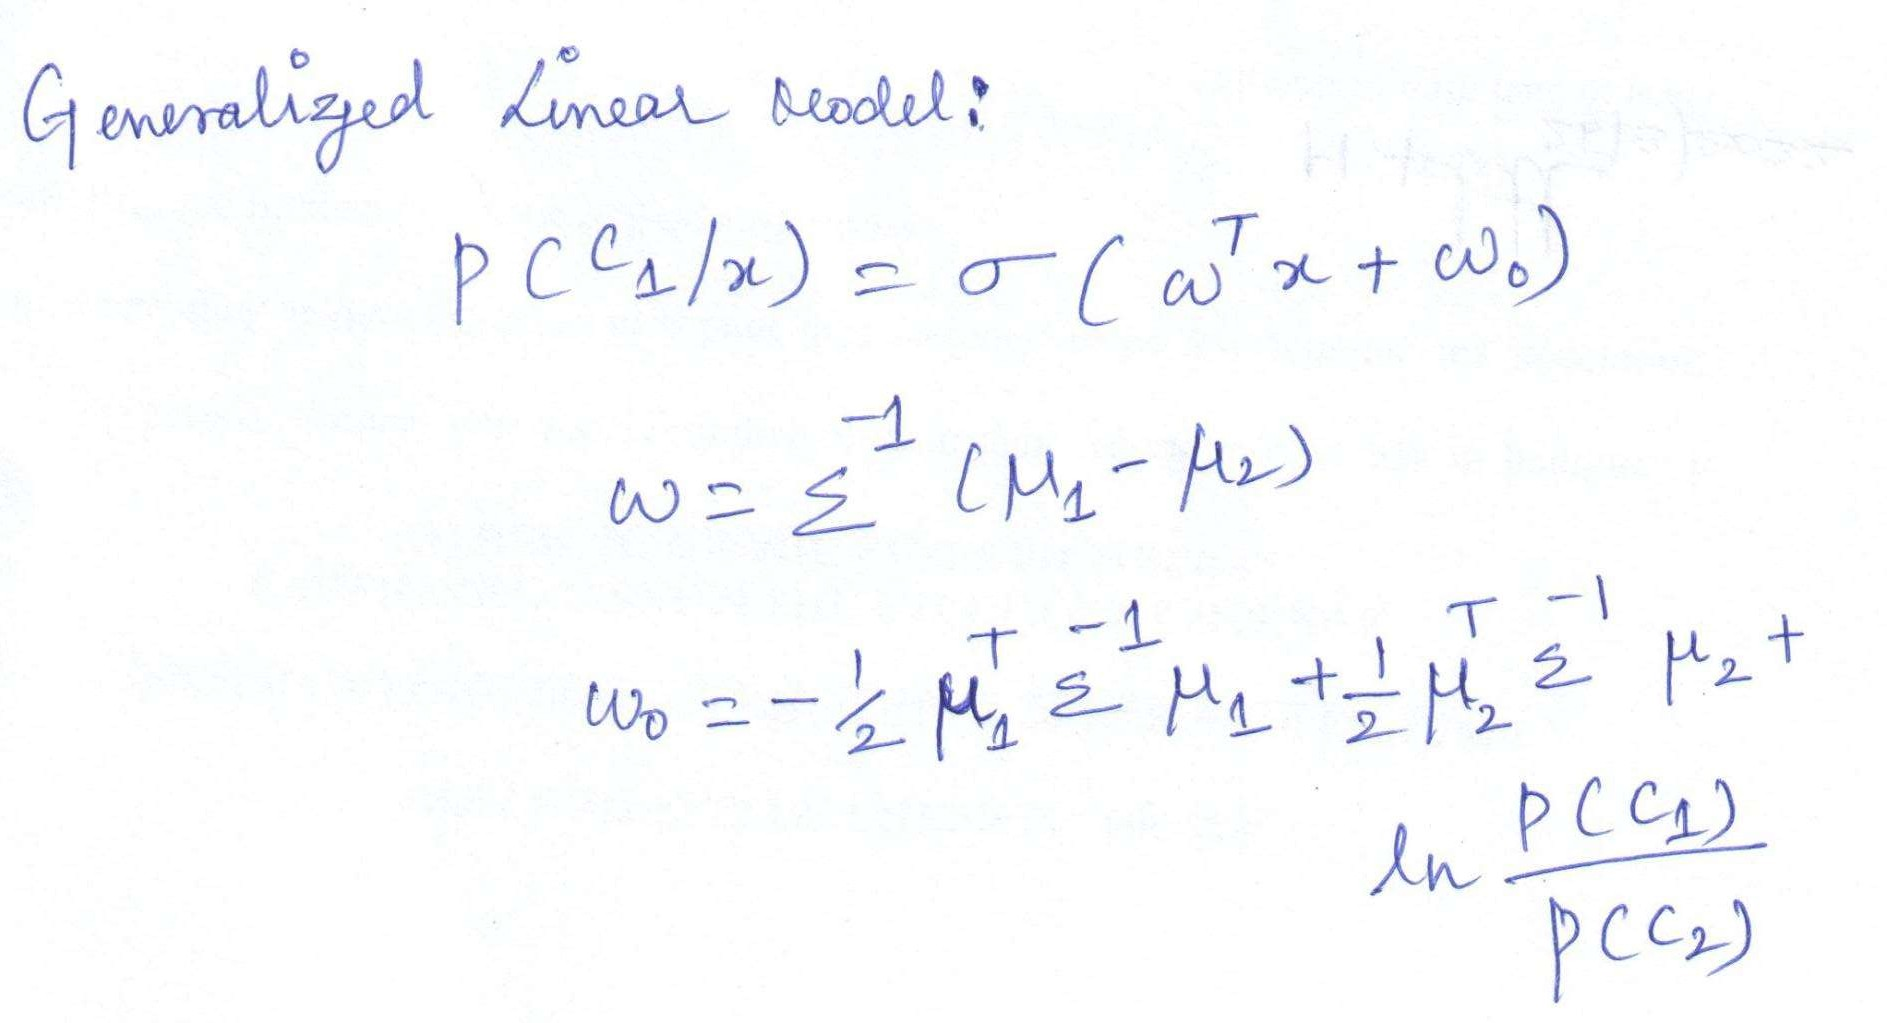 Generalized Linear Model:
P(C₁/x) = σ(ωᵀx + ω₀)
ω = Σ⁻¹ (μ₁ - μ₂)
ω₀ = -½ μ₁ᵀ Σ⁻¹ μ₁ + ½ μ₂ᵀ Σ⁻¹ μ₂ +
ln P(C₁)/P(C₂)